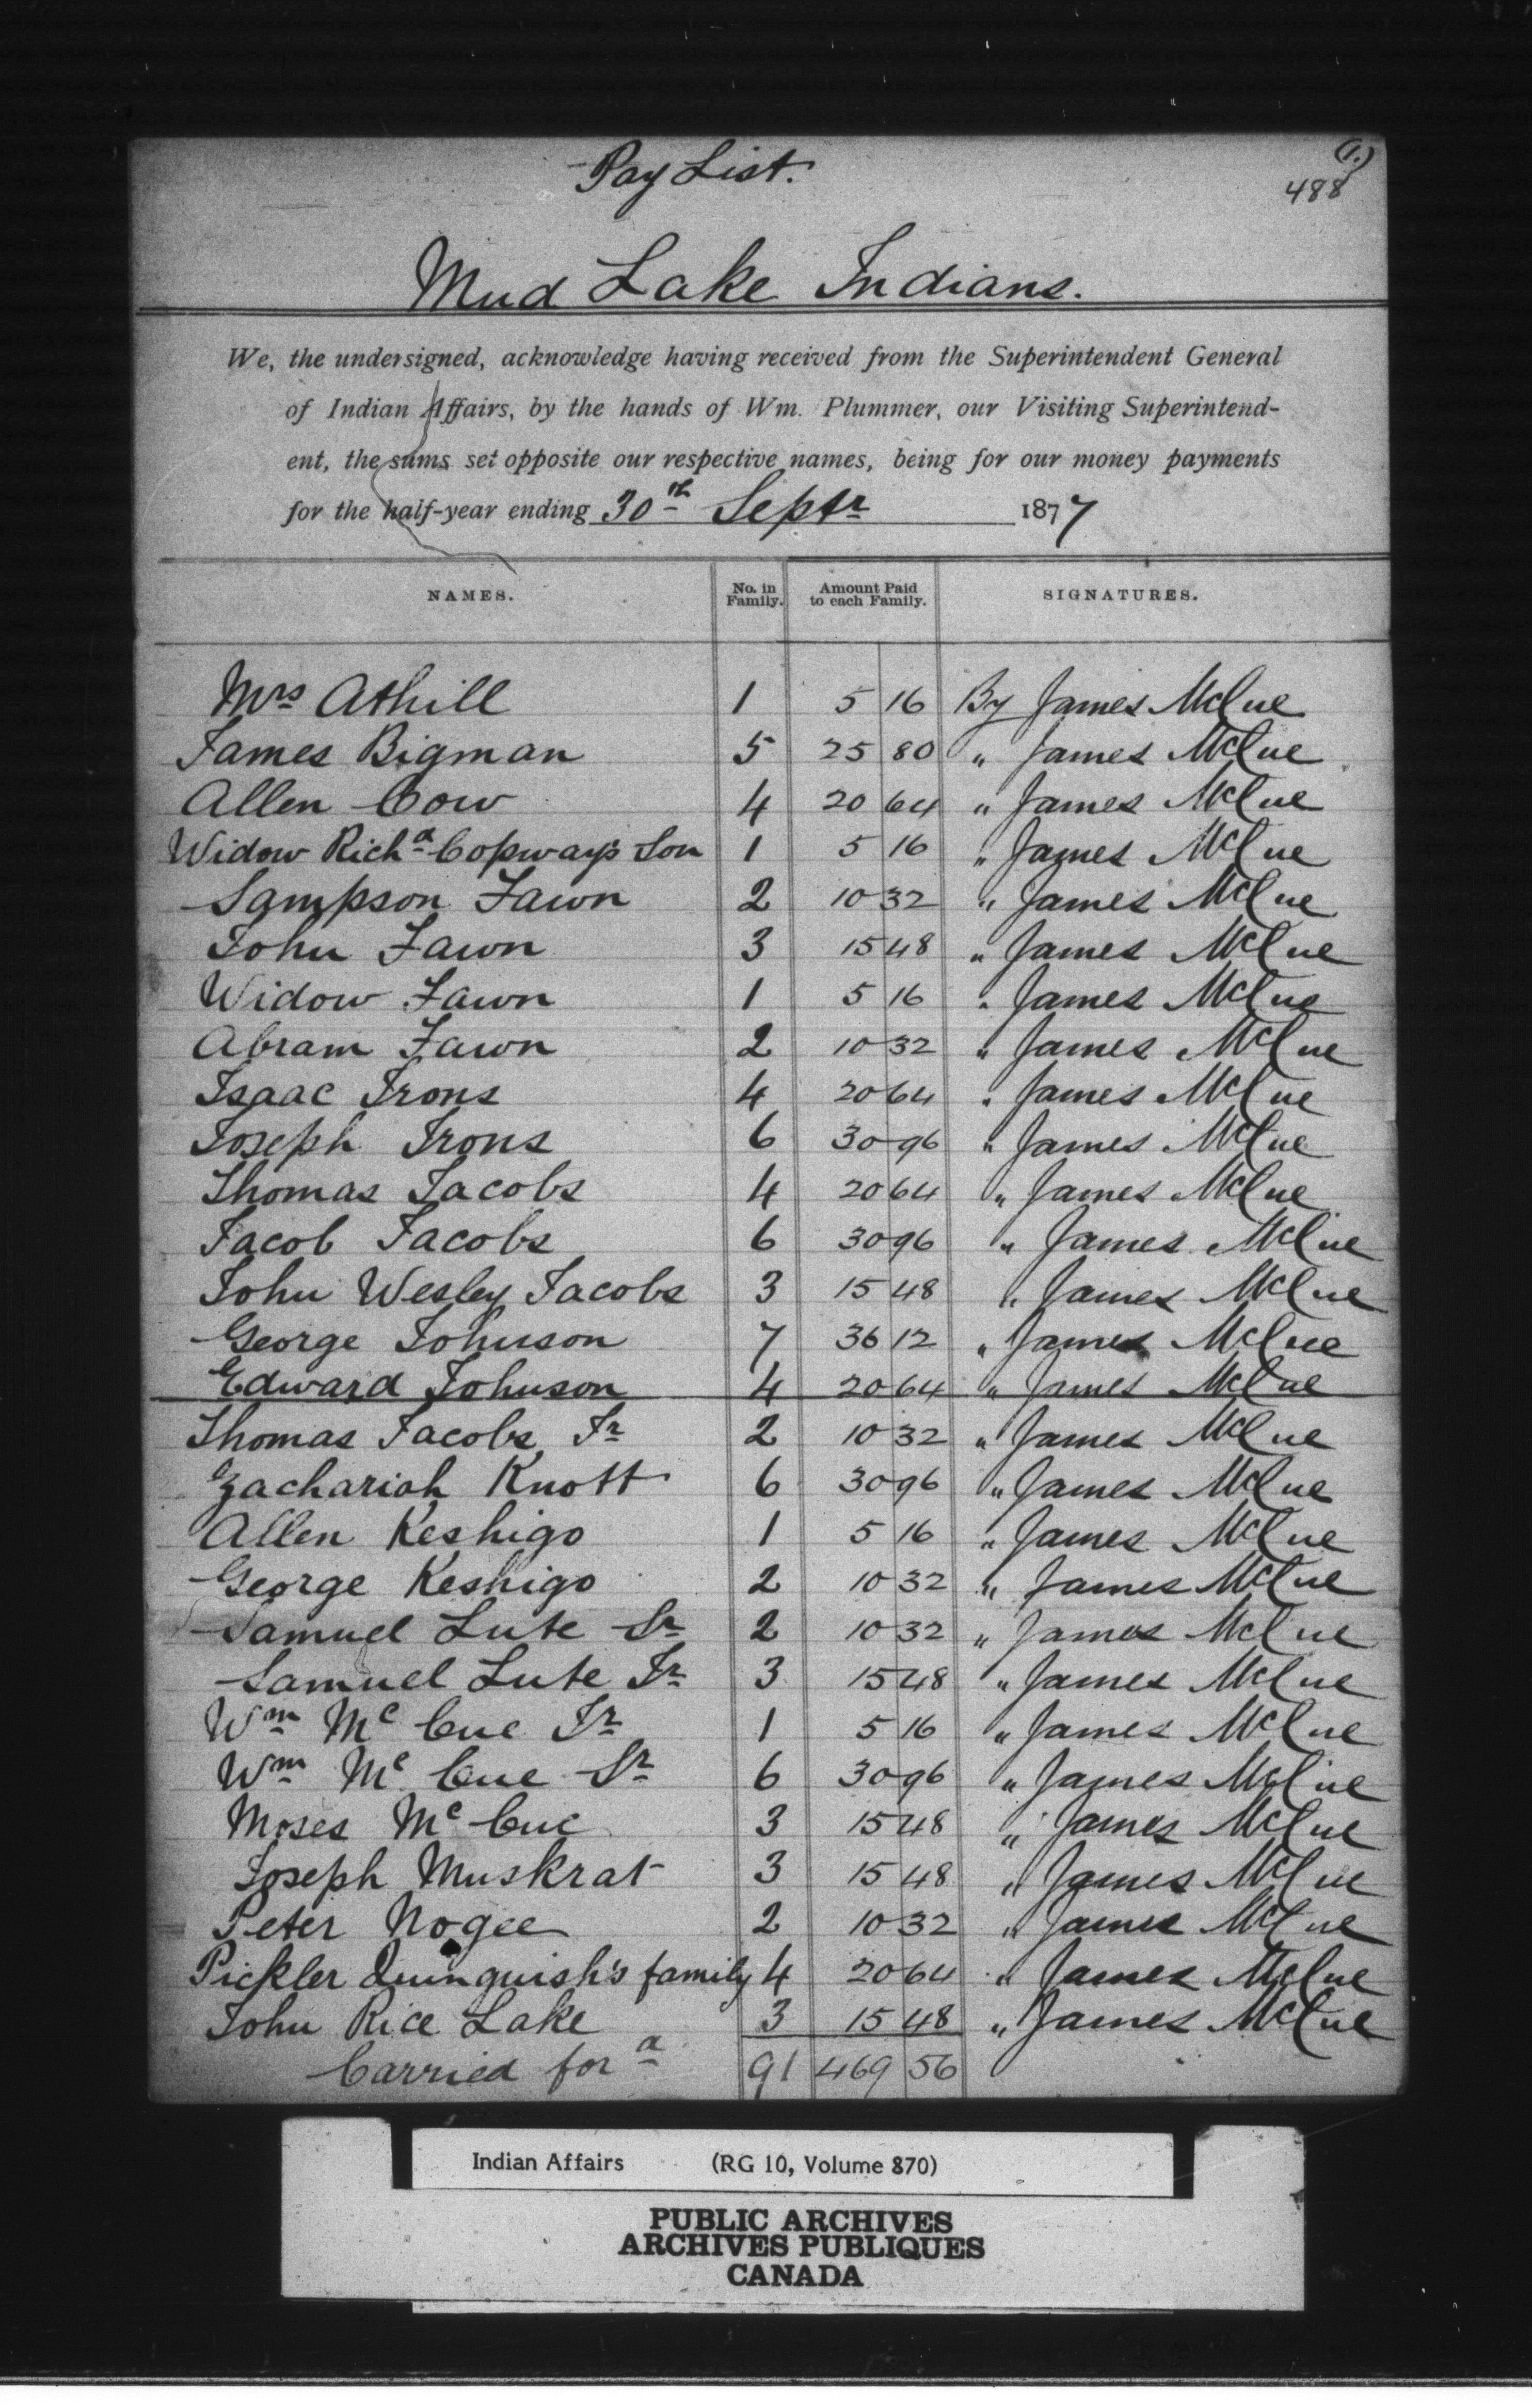 Pay List.
(1.)
488
Mud Lake Indians.
We, the undersigned, acknowledge having received from the Superintendent General
of Indian Affairs, by the hands of Wm. Plummer, our Visiting Superintend-
ent, the sums set opposite our respective names, being for our money payments
for the half-year ending 30th Septr 1877
NAMES. No. in Family. Amount Paid to each Family. SIGNATURES.
Mrs Athill 1 5 16 By James McCue
James Bigman 5 25 80 " James McCue
Allen Cow 4 20 64 " James McCue
Widow Richd Copway's Son 1 5 16 " James McCue
Sampson Fawn 2 10 32 " James McCue
John Fawn 3 15 48 " James McCue
Widow Fawn 1 5 16 " James McCue
Abram Fawn 2 10 32 " James McCue
Isaac Irons 4 20 64 " James McCue
Joseph Irons 6 30 96 " James McCue
Thomas Jacobs 4 20 64 " James McCue
Jacob Jacobs 6 30 96 " James McCue
John Wesley Jacobs 3 15 48 " James McCue
George Johnson 7 36 12 " James McCue
Edward Johnson 4 20 64 " James McCue
Thomas Jacobs Jr 2 10 32 " James McCue
Zachariah Knott 6 30 96 " James McCue
Allen Keshigo 1 5 16 " James McCue
George Keshigo 2 10 32 " James McCue
Samuel Lute Sr 2 10 32 " James McCue
Samuel Lute Jr 3 15 48 " James McCue
Wm McCue Jr 1 5 16 " James McCue
Wm McCue Sr 6 30 96 " James McCue
Moses McCue 3 15 48 " James McCue
Joseph Muskrat 3 15 48 " James McCue
Peter Nogee 2 10 32 " James McCue
Pickler Quinquish's family 4 20 64 " James McCue
John Rice Lake 3 15 48 " James McCue
Carried ford 91 469 56
Indian Affairs (RG 10, Volume 870)
PUBLIC ARCHIVES
ARCHIVES PUBLIQUES
CANADA